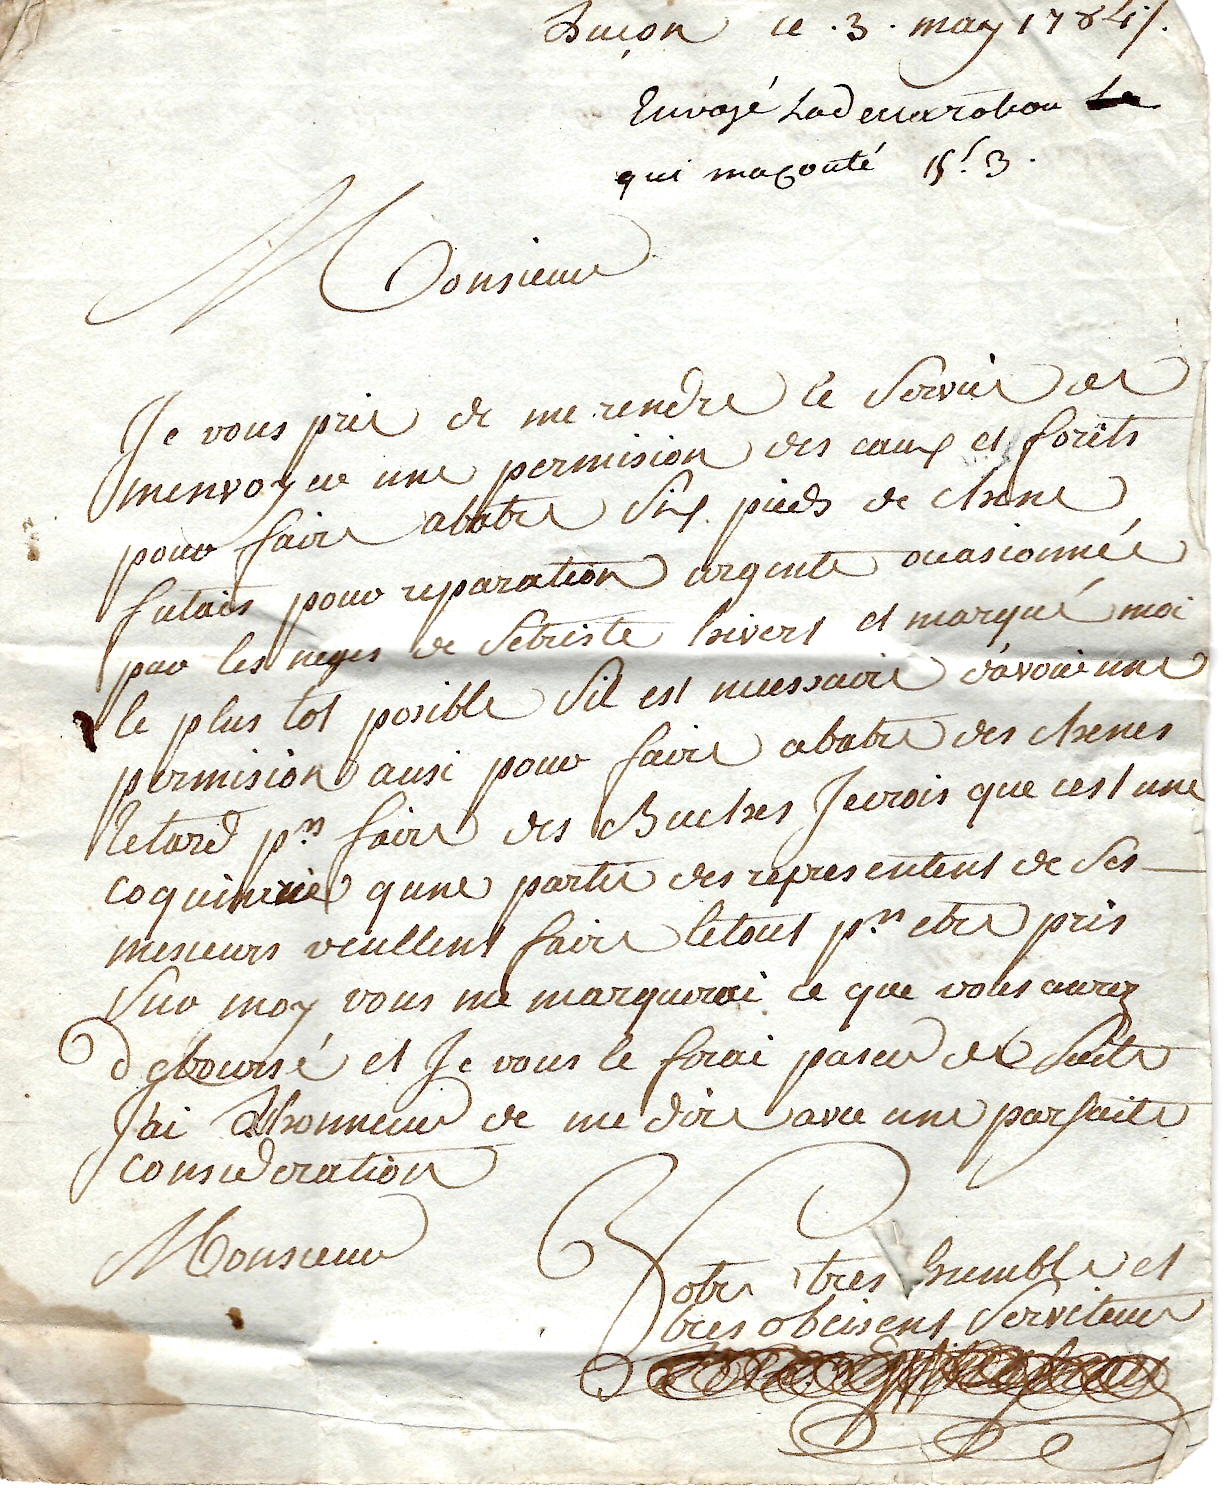 ce .3. may 1784
Envoyé La declaration
qui ma couté 15ˢ 3.
Monsieur
Je vous prie de me rendre le Service de
menvoyer une permision des eaux et forêts
pour faire abatre Six pieds de chene
futais pour reparation urgente ocasionnée
par les neges de Setriste hivert et marqué moi
le plus tot posible Sil est nuessaire davoir une
permision ausi pour faire abatre des chenes
tetard pʳ faire des Buches Je crois que cest une
coquinerie qune partie des representent de Ses
mesieurs veullent faire letout pʳ etre pris
Sur moy vous me marquerai ce que vous aurez
deboursé et Je vous le forai paser de Suite
Jai Lhonneur de me dire avec une parfaite
consideration
Monsieur
Votre tres humble et
tres obeisent Serviteur